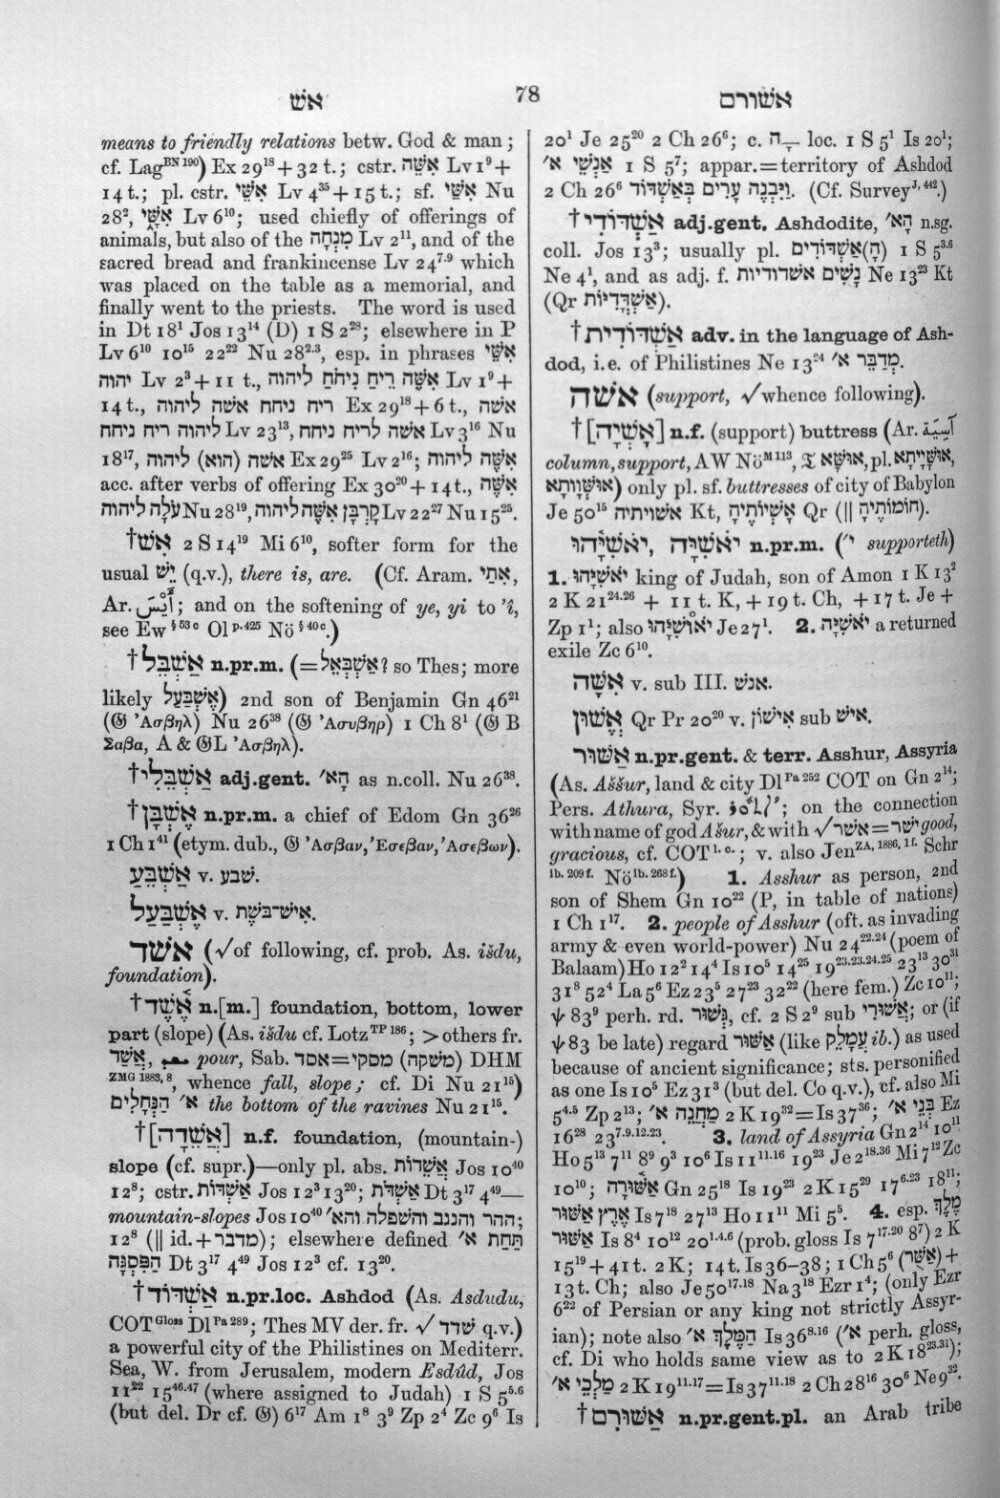 אשׁ
78
אשׁורם
means to friendly relations betw. God & man;
cf. Lag^BN 190) Ex 29^18 + 32 t.; cstr. אִשֵּׁה Lv 1^9 +
14 t.; pl. cstr. אִשֵּׁי Lv 4^35 + 15 t.; sf. אִשַּׁי Nu
28^2, אִשָּׁי Lv 6^10; used chiefly of offerings of
animals, but also of the מִנְחָה Lv 2^11, and of the
sacred bread and frankincense Lv 24^7.9 which
was placed on the table as a memorial, and
finally went to the priests. The word is used
in Dt 18^1 Jos 13^14 (D) 1 S 2^28; elsewhere in P
Lv 6^10 10^15 22^22 Nu 28^2.3, esp. in phrases אִשֵּׁי
יהוה Lv 2^3 + 11 t., אִשֵּׁה רֵיחַ נִיחֹחַ ליהוה Lv 1^9 +
14 t., ריח ניחח אשה ליהוה Ex 29^18 + 6 t., אשה
ליהוה ריח ניחח Lv 23^13, אשה לריח ניחח Lv 3^16 Nu
18^17, אשה (הוא) ליהוה Ex 29^25 Lv 2^16; אִשֶּׁה ליהוה
acc. after verbs of offering Ex 30^20 + 14 t., אִשֶּׁה
עֹלָה ליהוה Nu 28^19, קָרְבָּן אִשֶּׁה ליהוה Lv 22^27 Nu 15^25.
†אִשׁ 2 S 14^19 Mi 6^10, softer form for the
usual יֵשׁ (q.v.), there is, are. (Cf. Aram. אִתַי,
Ar. أَيْسَ; and on the softening of ye, yi to 'î,
see Ew^§ 53 c Ol^p. 425 Nö^§ 40 c.)
†אַשְׁבֵּל n.pr.m. (=אַשְׁבְּאֵל? so Thes; more
likely אֶשְׁבַּעַל) 2nd son of Benjamin Gn 46^21
(𝔊 Ἀσβηλ) Nu 26^38 (𝔊 Ἀσυβηρ) 1 Ch 8^1 (𝔊 B
Σαβα, A & 𝔊L Ἀσβηλ).
†אַשְׁבֵּלִי adj.gent. הָא׳ as n.coll. Nu 26^38.
†אֶשְׁבָּן n.pr.m. a chief of Edom Gn 36^26
1 Ch 1^41 (etym. dub., 𝔊 Ἀσβαν, Ἐσεβαν, Ἀσεβων).
אַשְׁבֵּעַ v. שׁבע.
אֶשְׁבַּעַל v. אִישׁ־בּשֶׁת.
אשׁד (√of following, cf. prob. As. išdu,
foundation).
†אֶ֫שֶׁד n.[m.] foundation, bottom, lower
part (slope) (As. išdu cf. Lotz^TP 186; > others fr.
אֲשַׁד, pour, Sab. אסד=מסקי (משקה) DHM
ZMG 1883, 8, whence fall, slope; cf. Di Nu 21^15)
א׳ הַנְּחָלִים the bottom of the ravines Nu 21^15.
†[אֲשֵׁדָה] n.f. foundation, (mountain-)
slope (cf. supr.)—only pl. abs. אֲשֵׁדוֹת Jos 10^40
12^8; cstr. אַשְׁדּוֹת Jos 12^3 13^20; אַשְׁדֹּת Dt 3^17 4^49—
mountain-slopes Jos 10^40 ההר והנגב והשפלה והא׳;
12^8 (|| id. + מדבר); elsewhere defined תַּחַת א׳
הַפִּסְגָּה Dt 3^17 4^49 Jos 12^3 cf. 13^20.
†אַשְׁדּוֹד n.pr.loc. Ashdod (As. Asdudu,
COT^Gloss Dl^Pa 289; Thes MV der. fr. √ שׁדד q.v.)
a powerful city of the Philistines on Mediterr.
Sea, W. from Jerusalem, modern Esdûd, Jos
11^22 15^46.47 (where assigned to Judah) 1 S 5^5.6
(but del. Dr cf. 𝔊) 6^17 Am 1^8 3^9 Zp 2^4 Zc 9^6 Is
20^1 Je 25^20 2 Ch 26^6; c. ־ָה loc. 1 S 5^1 Is 20^1;
אַנְשֵׁי א׳ 1 S 5^7; appar.=territory of Ashdod
2 Ch 26^6 וַיִּבְנֶה עָרִים בְּאַשְׁדּוֹד. (Cf. Survey^J, 442.)
†אַשְׁדּוֹדִי adj.gent. Ashdodite, הָא׳ n.sg.
coll. Jos 13^3; usually pl. (הָ)אַשְׁדּוֹדִים 1 S 5^3.6
Ne 4^1, and as adj. f. נָשִׁים אשדודיות Ne 13^23 Kt
(Qr אַשְׁדֳּדִיּוֹת).
†אַשְׁדּוֹדִית adv. in the language of Ash-
dod, i.e. of Philistines Ne 13^24 מְדַבֵּר א׳.
אשׁה (support, √whence following).
†[אָשְׁיָה] n.f. (support) buttress (Ar. آسِيَة
column, support, AW Nö^M 113, 𝔗 אוּשָּׁא, pl. אוּשַׁיָּיתָא,
אוּשְׁוָתָא) only pl. sf. buttresses of city of Babylon
Je 50^15 אשויתיה Kt, אָשְׁיוֹתֶיהָ Qr (|| חוֹמוֹתֶיהָ).
יֹאשִׁיָּה, יֹאשִׁיָּ֫הוּ n.pr.m. (״י supporteth)
1. יֹאשִׁיָּהוּ king of Judah, son of Amon 1 K 13^2
2 K 21^24.26 + 11 t. K, + 19 t. Ch, + 17 t. Je +
Zp 1^1; also יֹאושִׁיָּהוּ Je 27^1. 2. יֹאשִׁיָּה a returned
exile Zc 6^10.
אִשָּׁה v. sub III. אנשׁ.
אֱשׁוּן Qr Pr 20^20 v. אִישׁוֹן sub אישׁ.
אַשּׁוּר n.pr.gent. & terr. Asshur, Assyria
(As. Aššur, land & city Dl^Pa 252 COT on Gn 2^14;
Pers. Athura, Syr. ܐܬܘܪ; on the connection
with name of god Ašur, & with √ישׁר=אשׁר good,
gracious, cf. COT^l. c.; v. also Jen^ZA, 1886, 1 f. Schr
^ib. 209 f. Nö^ib. 268 f.) 1. Asshur as person, 2nd
son of Shem Gn 10^22 (P, in table of nations)
1 Ch 1^17. 2. people of Asshur (oft. as invading
army & even world-power) Nu 24^22.24 (poem of
Balaam) Ho 12^2 14^4 Is 10^5 14^25 19^23.23.24.25 23^13 30^31
31^8 52^4 La 5^6 Ez 23^5 27^23 32^22 (here fem.) Zc 10^11;
ψ 83^9 perh. rd. גְּשׁוּר, cf. 2 S 2^9 sub אֲשׁוּרִי; or (if
ψ 83 be late) regard אשׁור (like עֲמָלֵק ib.) as used
because of ancient significance; sts. personified
as one Is 10^5 Ez 31^3 (but del. Co q.v.), cf. also Mi
5^4.5 Zp 2^13; מַחֲנֵה א׳ 2 K 19^32=Is 37^36; בְּנֵי א׳ Ez
16^28 23^7.9.12.23. 3. land of Assyria Gn 2^14 10^11
Ho 5^13 7^11 8^9 9^3 10^6 Is 11^11.16 19^23 Je 2^18.36 Mi 7^12 Zc
10^10; אַשּׁוּרָה Gn 25^18 Is 19^23 2 K 15^29 17^6.23 18^11;
אֶרֶץ אַשּׁוּר Is 7^18 27^13 Ho 11^11 Mi 5^5. 4. esp. מֶלֶךְ
אַשּׁוּר Is 8^4 10^12 20^1.4.6 (prob. gloss Is 7^17.20 8^7) 2 K
15^19 + 41 t. 2 K; 14 t. Is 36–38; 1 Ch 5^6 (אַשֻּׁר) +
13 t. Ch; also Je 50^17.18 Na 3^18 Ezr 1^4; (only Ezr
6^22 of Persian or any king not strictly Assyr-
ian); note also הַמֶּלֶךְ א׳ Is 36^8.16 (א׳ perh. gloss,
cf. Di who holds same view as to 2 K 18^23.31);
מַלְכֵי א׳ 2 K 19^11.17=Is 37^11.18 2 Ch 28^16 30^6 Ne 9^32.
†אַשּׁוּרִם n.pr.gent.pl. an Arab tribe